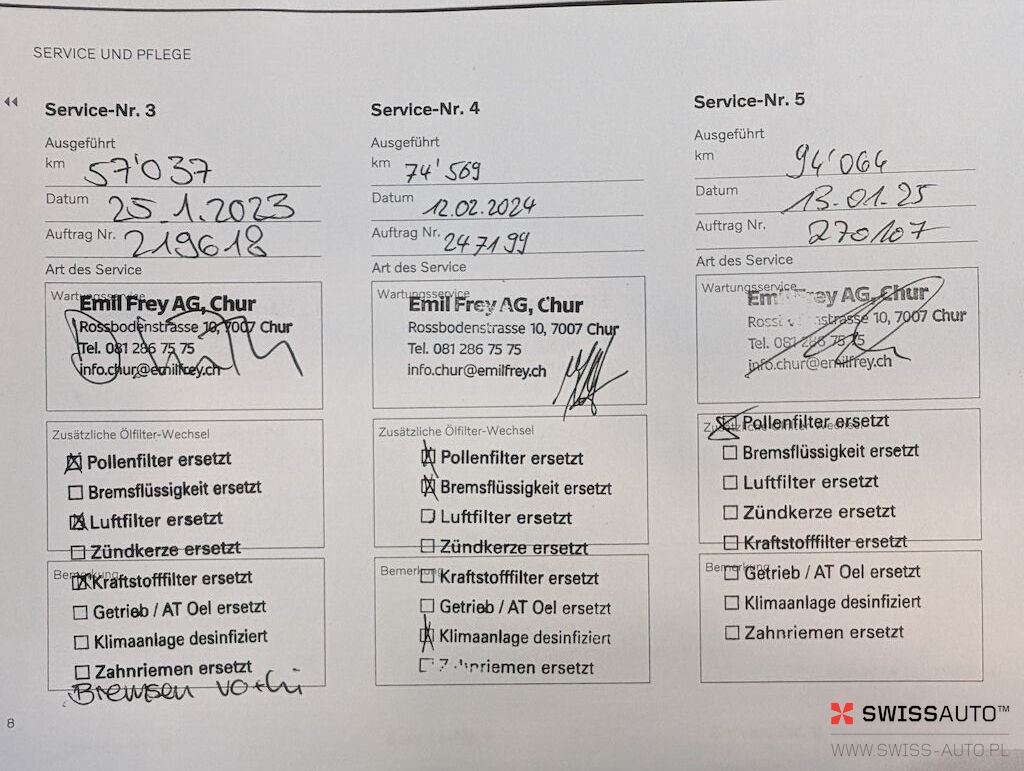 SERVICE UND PFLEGE
Service-Nr. 3
Ausgeführt
km 57'037
Datum 25.1.2023
Auftrag Nr. 219618
Art des Service
Wartungsservice
Emil Frey AG, Chur
Rossbodenstrasse 10, 7007 Chur
Tel. 081 286 75 75
info.chur@emilfrey.ch
Zusätzliche Ölfilter-Wechsel
Pollenfilter ersetzt
Bremsflüssigkeit ersetzt
Luftfilter ersetzt
Zündkerze ersetzt
Bemerkung
Kraftstofffilter ersetzt
Getrieb / AT Oel ersetzt
Klimaanlage desinfiziert
Zahnriemen ersetzt
Bremsen
Service-Nr. 4
Ausgeführt
km 74'569
Datum 12.02.2024
Auftrag Nr. 247199
Art des Service
Wartungsservice
Emil Frey AG, Chur
Rossbodenstrasse 10, 7007 Chur
Tel. 081 286 75 75
info.chur@emilfrey.ch
Zusätzliche Ölfilter-Wechsel
Pollenfilter ersetzt
Bremsflüssigkeit ersetzt
Luftfilter ersetzt
Zündkerze ersetzt
Bemerkung
Kraftstofffilter ersetzt
Getrieb / AT Oel ersetzt
Klimaanlage desinfiziert
Zahnriemen ersetzt
Service-Nr. 5
Ausgeführt
km 94'064
Datum 13.01.25
Auftrag Nr. 270107
Art des Service
Wartungsservice
Emil Frey AG, Chur
Rossbodenstrasse 10, 7007 Chur
Tel. 081 286 75 75
info.chur@emilfrey.ch
Zusätzliche Ölfilter-Wechsel
Pollenfilter ersetzt
Bremsflüssigkeit ersetzt
Luftfilter ersetzt
Zündkerze ersetzt
Kraftstofffilter ersetzt
Bemerkung
Getrieb / AT Oel ersetzt
Klimaanlage desinfiziert
Zahnriemen ersetzt
8
SWISSAUTO™
WWW.SWISS-AUTO.PL